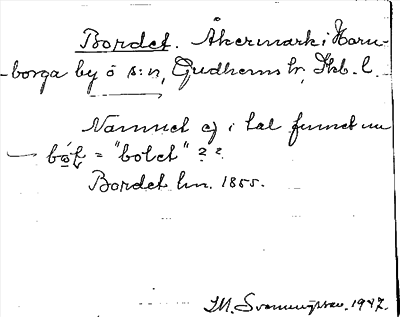 Bordet. Åkermark i Horn-
borga by o s:n, Gudhems hr, Skb. l.
Namnet ej i tal funnet nu
bo̤t = "bolet" ? ?
Bordet hn. 1855.
M. Svenungsson. 1947.